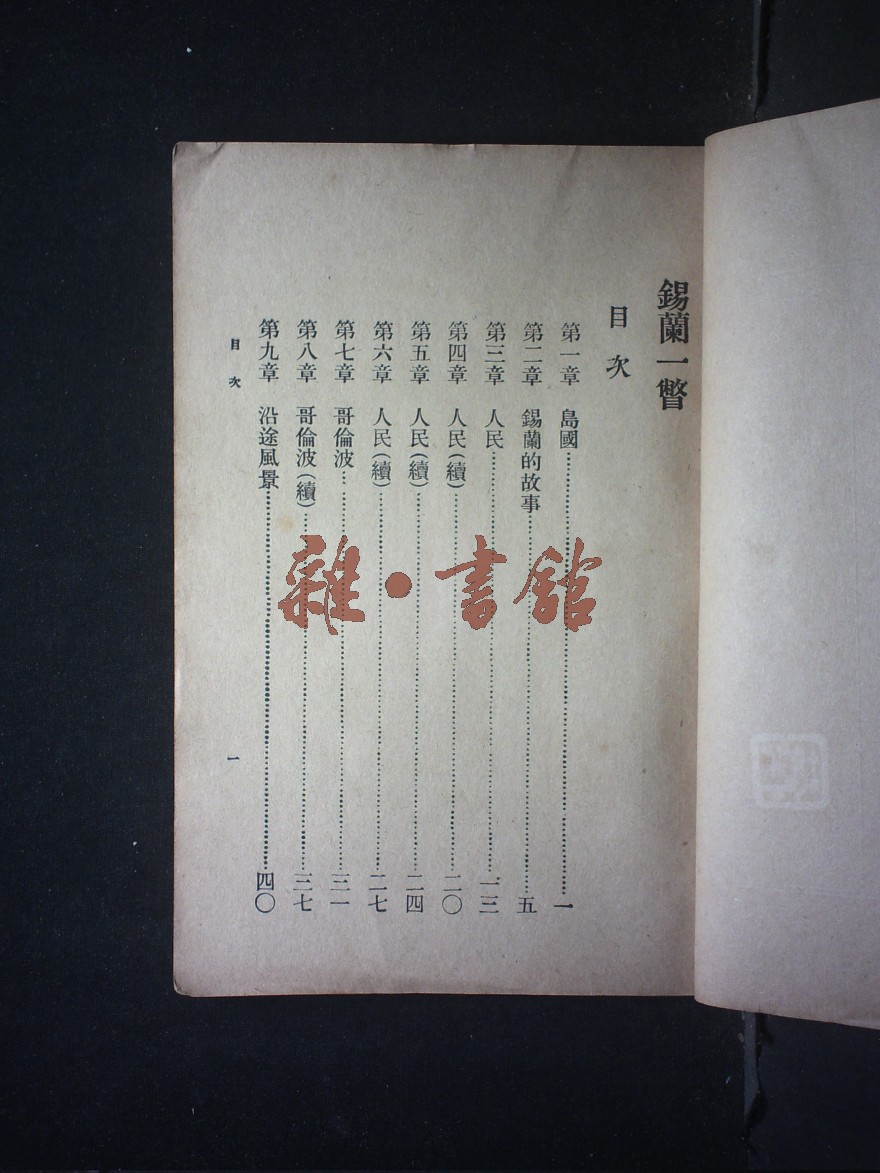 錫蘭一瞥
目次
第一章 島國……一
第二章 錫蘭的故事……五
第三章 人民……一三
第四章 人民(續)……二〇
第五章 人民(續)……二四
第六章 人民(續)……二七
第七章 哥倫波……三一
第八章 哥倫波(續)……三七
第九章 沿途風景……四〇
目次
一
雜·書館